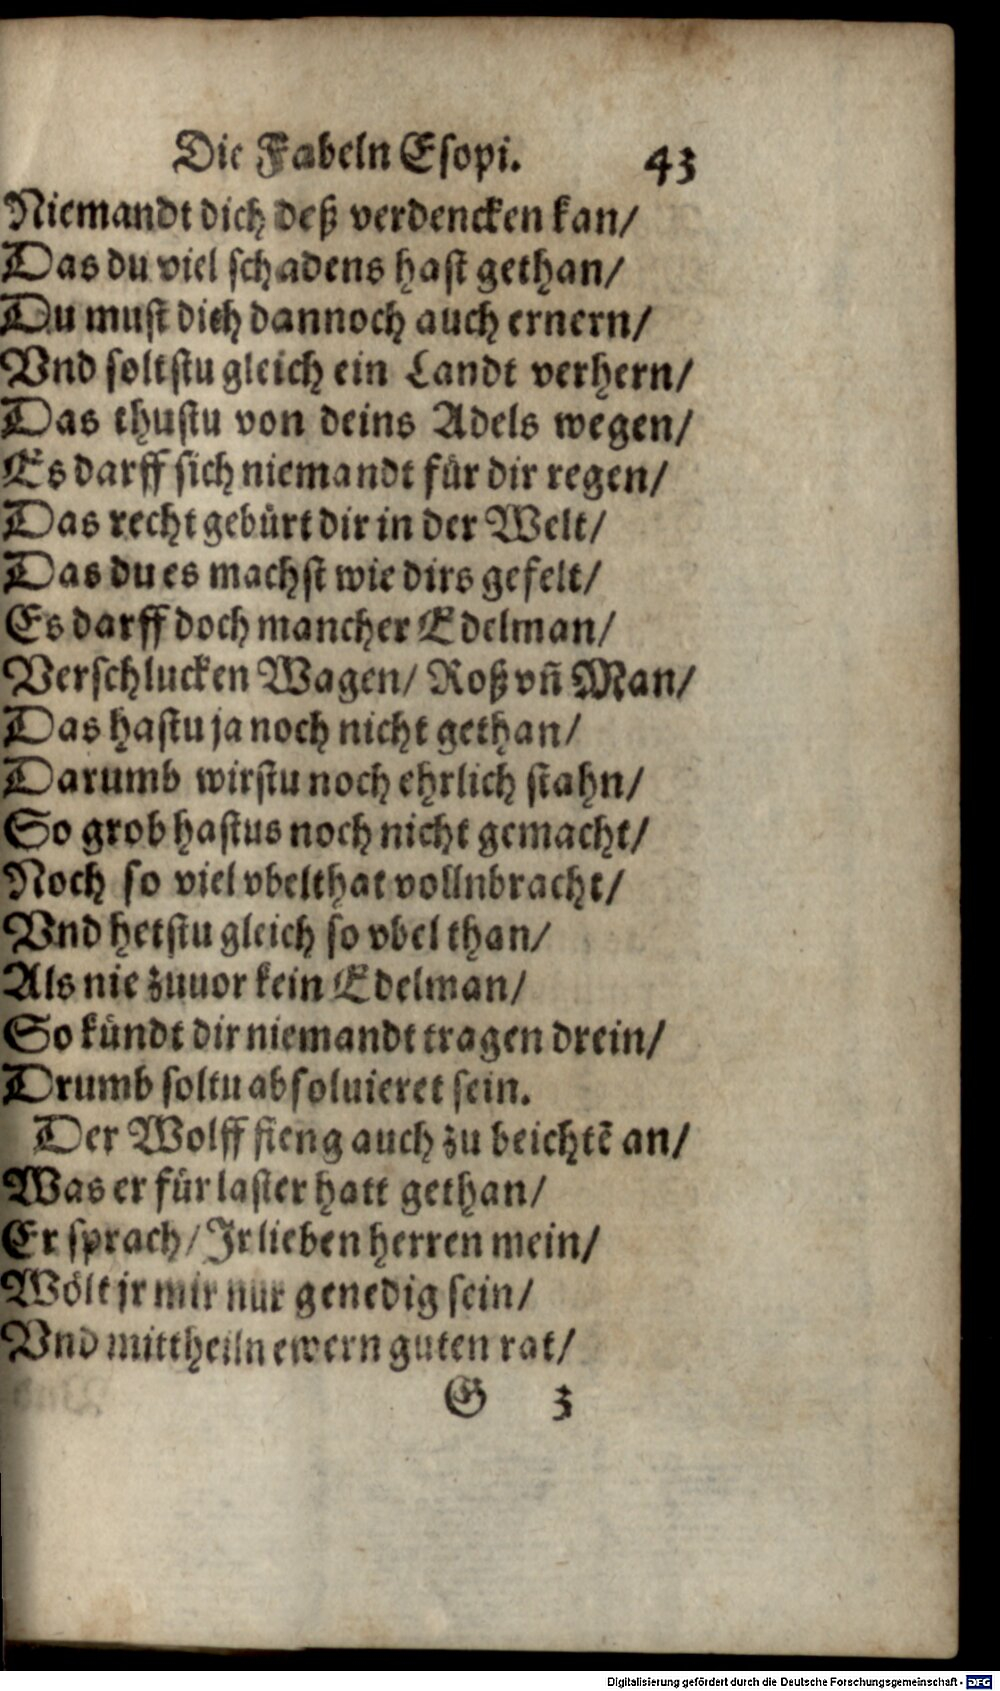 Die Fabeln Esopi. 43
Niemandt dich deß verdencken kan/
Das du viel schadens hast gethan/
Du must dich dannoch auch ernern/
Vnd soltstu gleich ein Landt verhern/
Das thustu von deins Adels wegen/
Es darff sich niemandt für dir regen/
Das recht gebürt dir in der Welt/
Das du es machst wie dirs gefelt/
Es darff doch mancher Edelman/
Verschlucken Wagen/ Roß vñ Man/
Das hastu ja noch nicht gethan/
Darumb wirstu noch ehrlich stahn/
So grob hastus noch nicht gemacht/
Noch so viel vbelthat vollnbracht/
Vnd hetstu gleich so vbel than/
Als nie zuuor kein Edelman/
So kündt dir niemandt tragen drein/
Drumb soltu absoluieret sein.
Der Wolff fieng auch zu beichtē an/
Was er für laster hatt gethan/
Er sprach/ Ir lieben herren mein/
Wölt jr mir nur genedig sein/
Vnd mittheiln ewern guten rat/
G 3
Digitalisierung gefördert durch die Deutsche Forschungsgemeinschaft - DFG